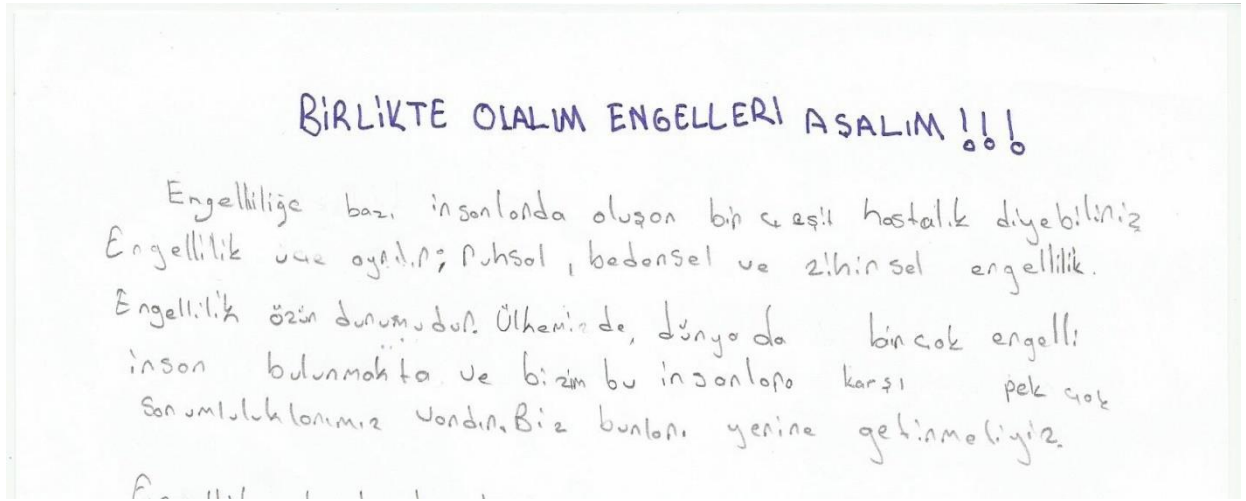 BİRLİKTE OLALIM ENGELLERİ AŞALIM !!!
Engelliliğe bazı insanlarda oluşan bir çeşit hastalık diyebiliriz
Engellilik üçe ayrılır; ruhsal, bedensel ve zihinsel engellilik.
Engellilik özür durumudur. Ülkemizde, dünyada birçok engelli
insan bulunmakta ve bizim bu insanlara karşı pek çok
sorumluluklarımız vardır. Biz bunları yerine getirmeliyiz.